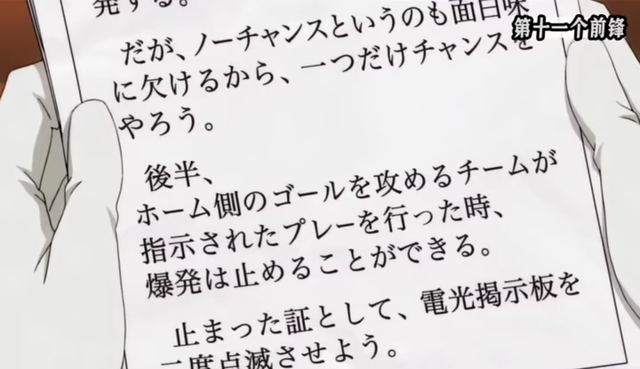 発する。
第十一个前鋒
だが、ノーチャンスというのも面白味
に欠けるから、一つだけチャンスを
やろう。
後半、
ホーム側のゴールを攻めるチームが
指示されたプレーを行った時、
爆発は止めることができる。
止まった証として、電光掲示板を
二度点滅させよう。